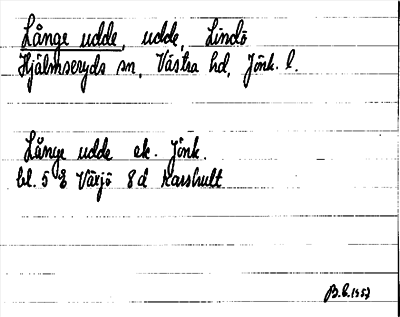 Långe udde, udde, Lindö
Hjälmseryds sn, Västra hd, Jönk. l.
Långe udde ek. Jönk.
bl. 5 E Växjö 8 d Karshult
B.C. 1957